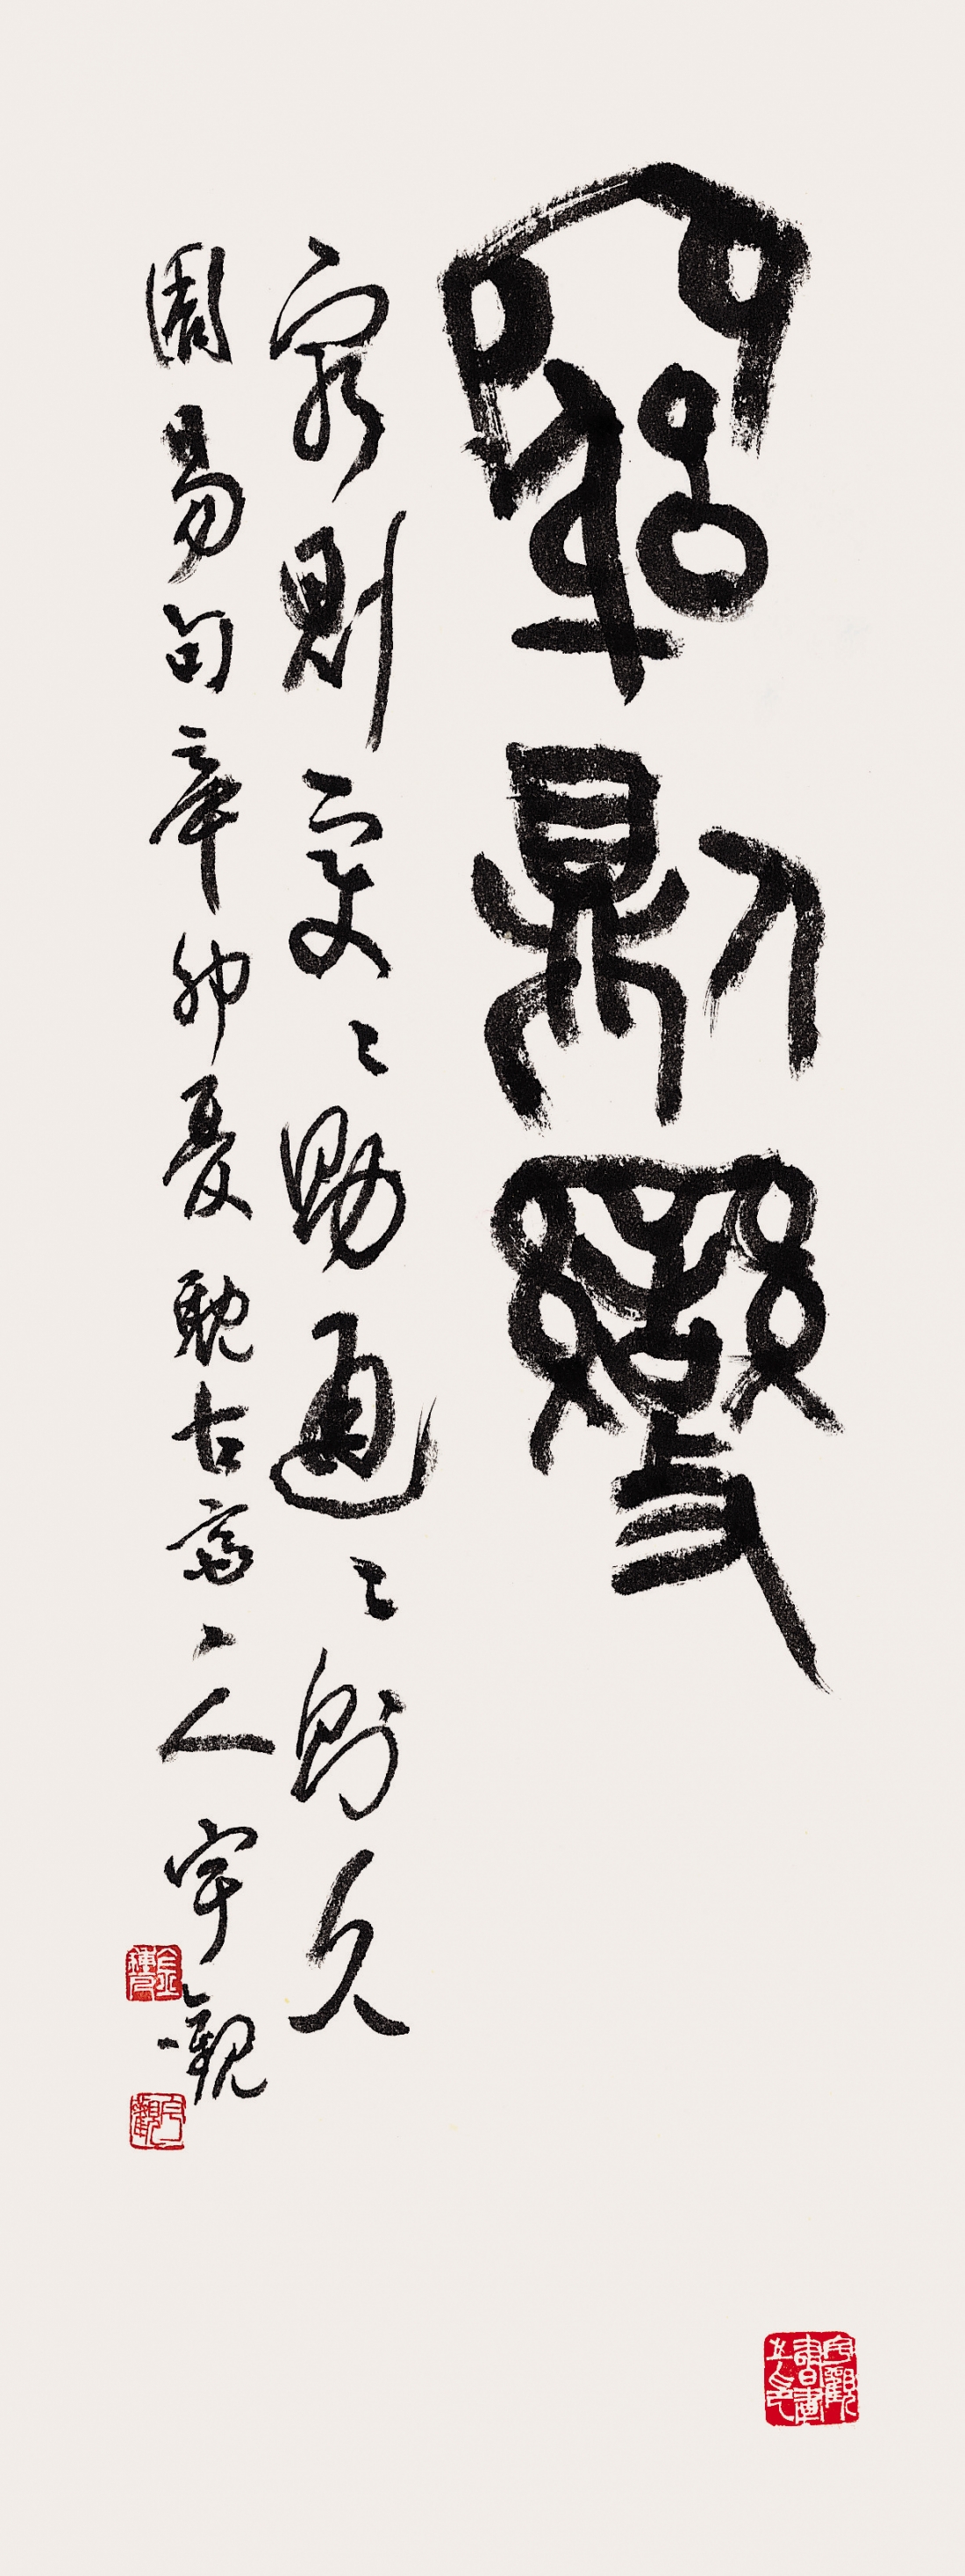 窮則變
窮則變〻則通〻則久
周易句辛卯夏耽古齋主人宇觀